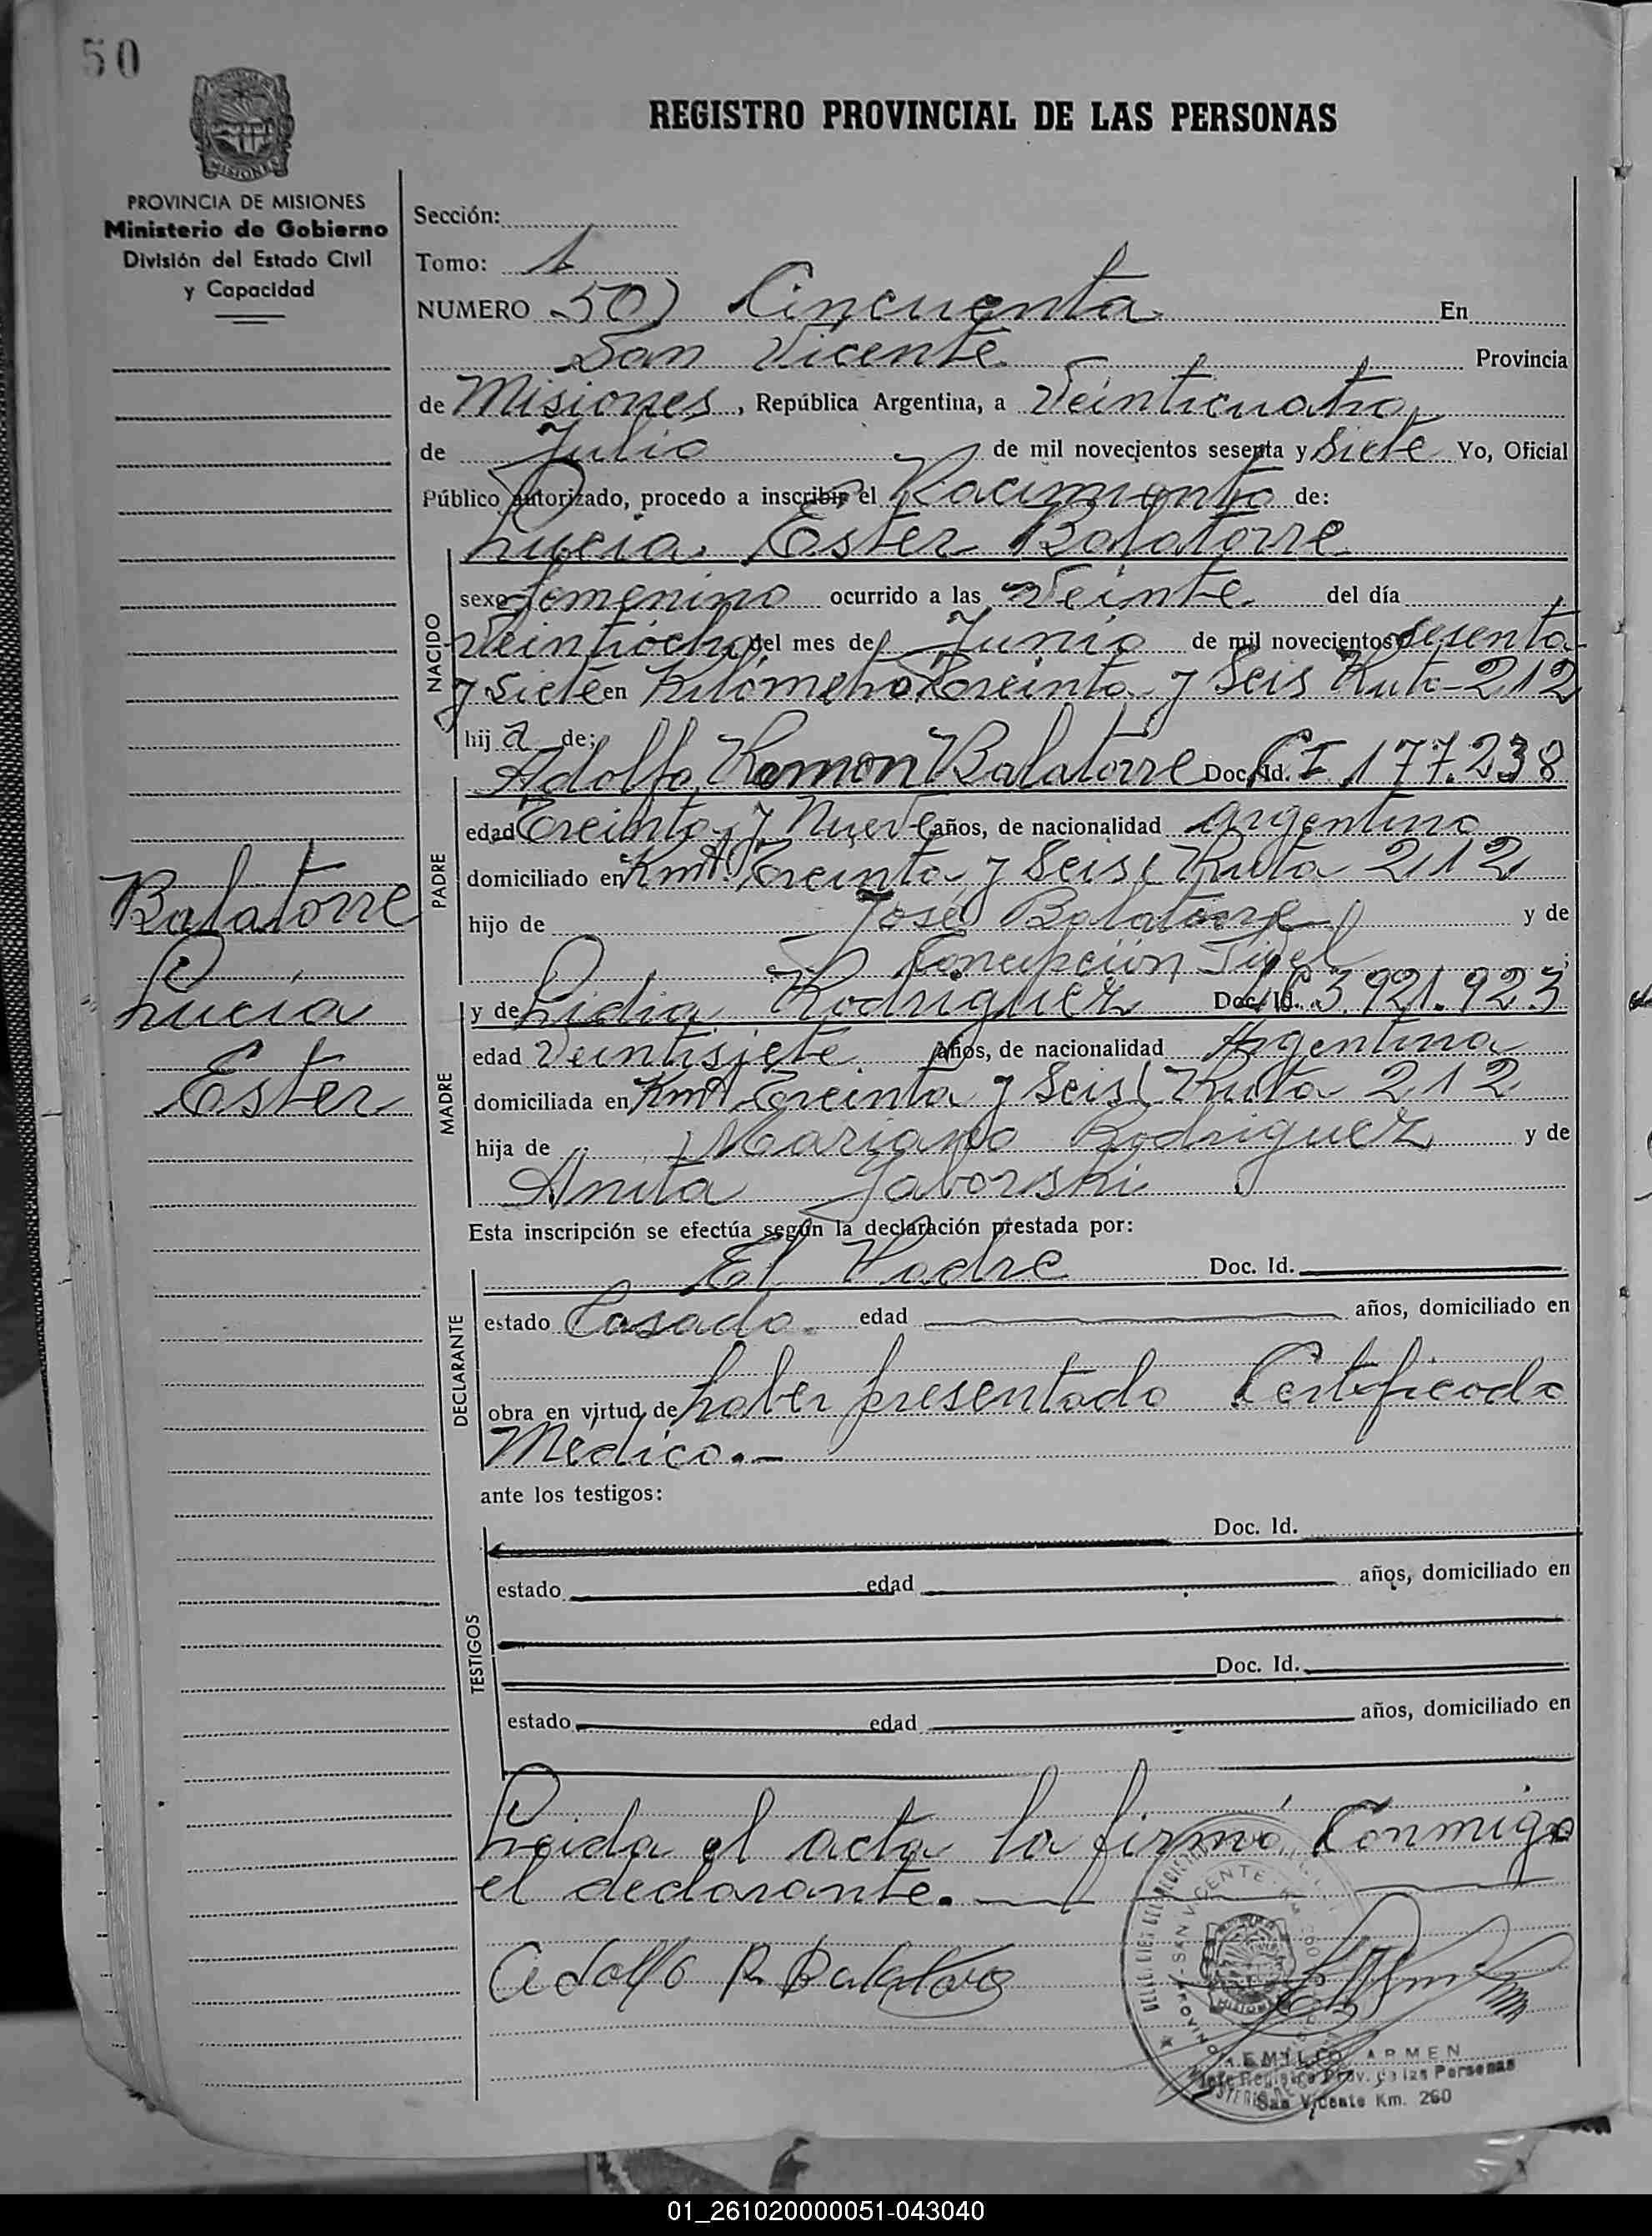 50
REGISTRO PROVINCIAL DE LAS PERSONAS
MISIONES
PROVINCIA DE MISIONES
Ministerio de Gobierno
División del Estado Civil
y Capacidad
Sección:
Tomo: 1
NUMERO 50) Cincuenta En
San Vicente Provincia
de Misiones, República Argentina, a Veinticuatro
de Julio de mil novecientos sesenta y Siete Yo, Oficial
Público autorizado, procedo a inscribir el Nacimiento de:
Lucia Ester Balatorre
NACIDO
sexo femenino ocurrido a las Veinte del día
Veintiocho del mes de Junio de mil novecientos sesenta
y siete en Kilometro Treinta y Seis Ruta 212
hija de:
PADRE
Adolfo Ramon Balatorre Doc. Id. C I 177.238
edad Treinta y Nueve años, de nacionalidad argentino
domiciliado en Kmt. Treinta y Seis Ruta 212
hijo de José Balatorre y de
Concepciión
Balatorre
Lucia
Ester
MADRE
y de Lidia Rodriguez Doc. Id. LC 3.921.923
edad Veintisiete años, de nacionalidad Argentina
domiciliada en Kmt Treinta y Seis Ruta 212
hija de Mariano Rodriguez y de
Anita Jaborski
Esta inscripción se efectúa según la declaración prestada por:
DECLARANTE
El Padre Doc. Id.
estado Casado edad años, domiciliado en
obra en virtud de haber presentado Certificado
Médico.-
ante los testigos:
TESTIGOS
Doc. Id.
estado edad años, domiciliado en
Doc. Id.
estado edad años, domiciliado en
Leida el acta la firmó Conmigo
el declarante.
Adolfo R. Balatorre
SAN VICENTE
EMILIO ARMEN
Jefe Registro Prov. de las Personas
San Vicente Km. 260
01_261020000051-043040